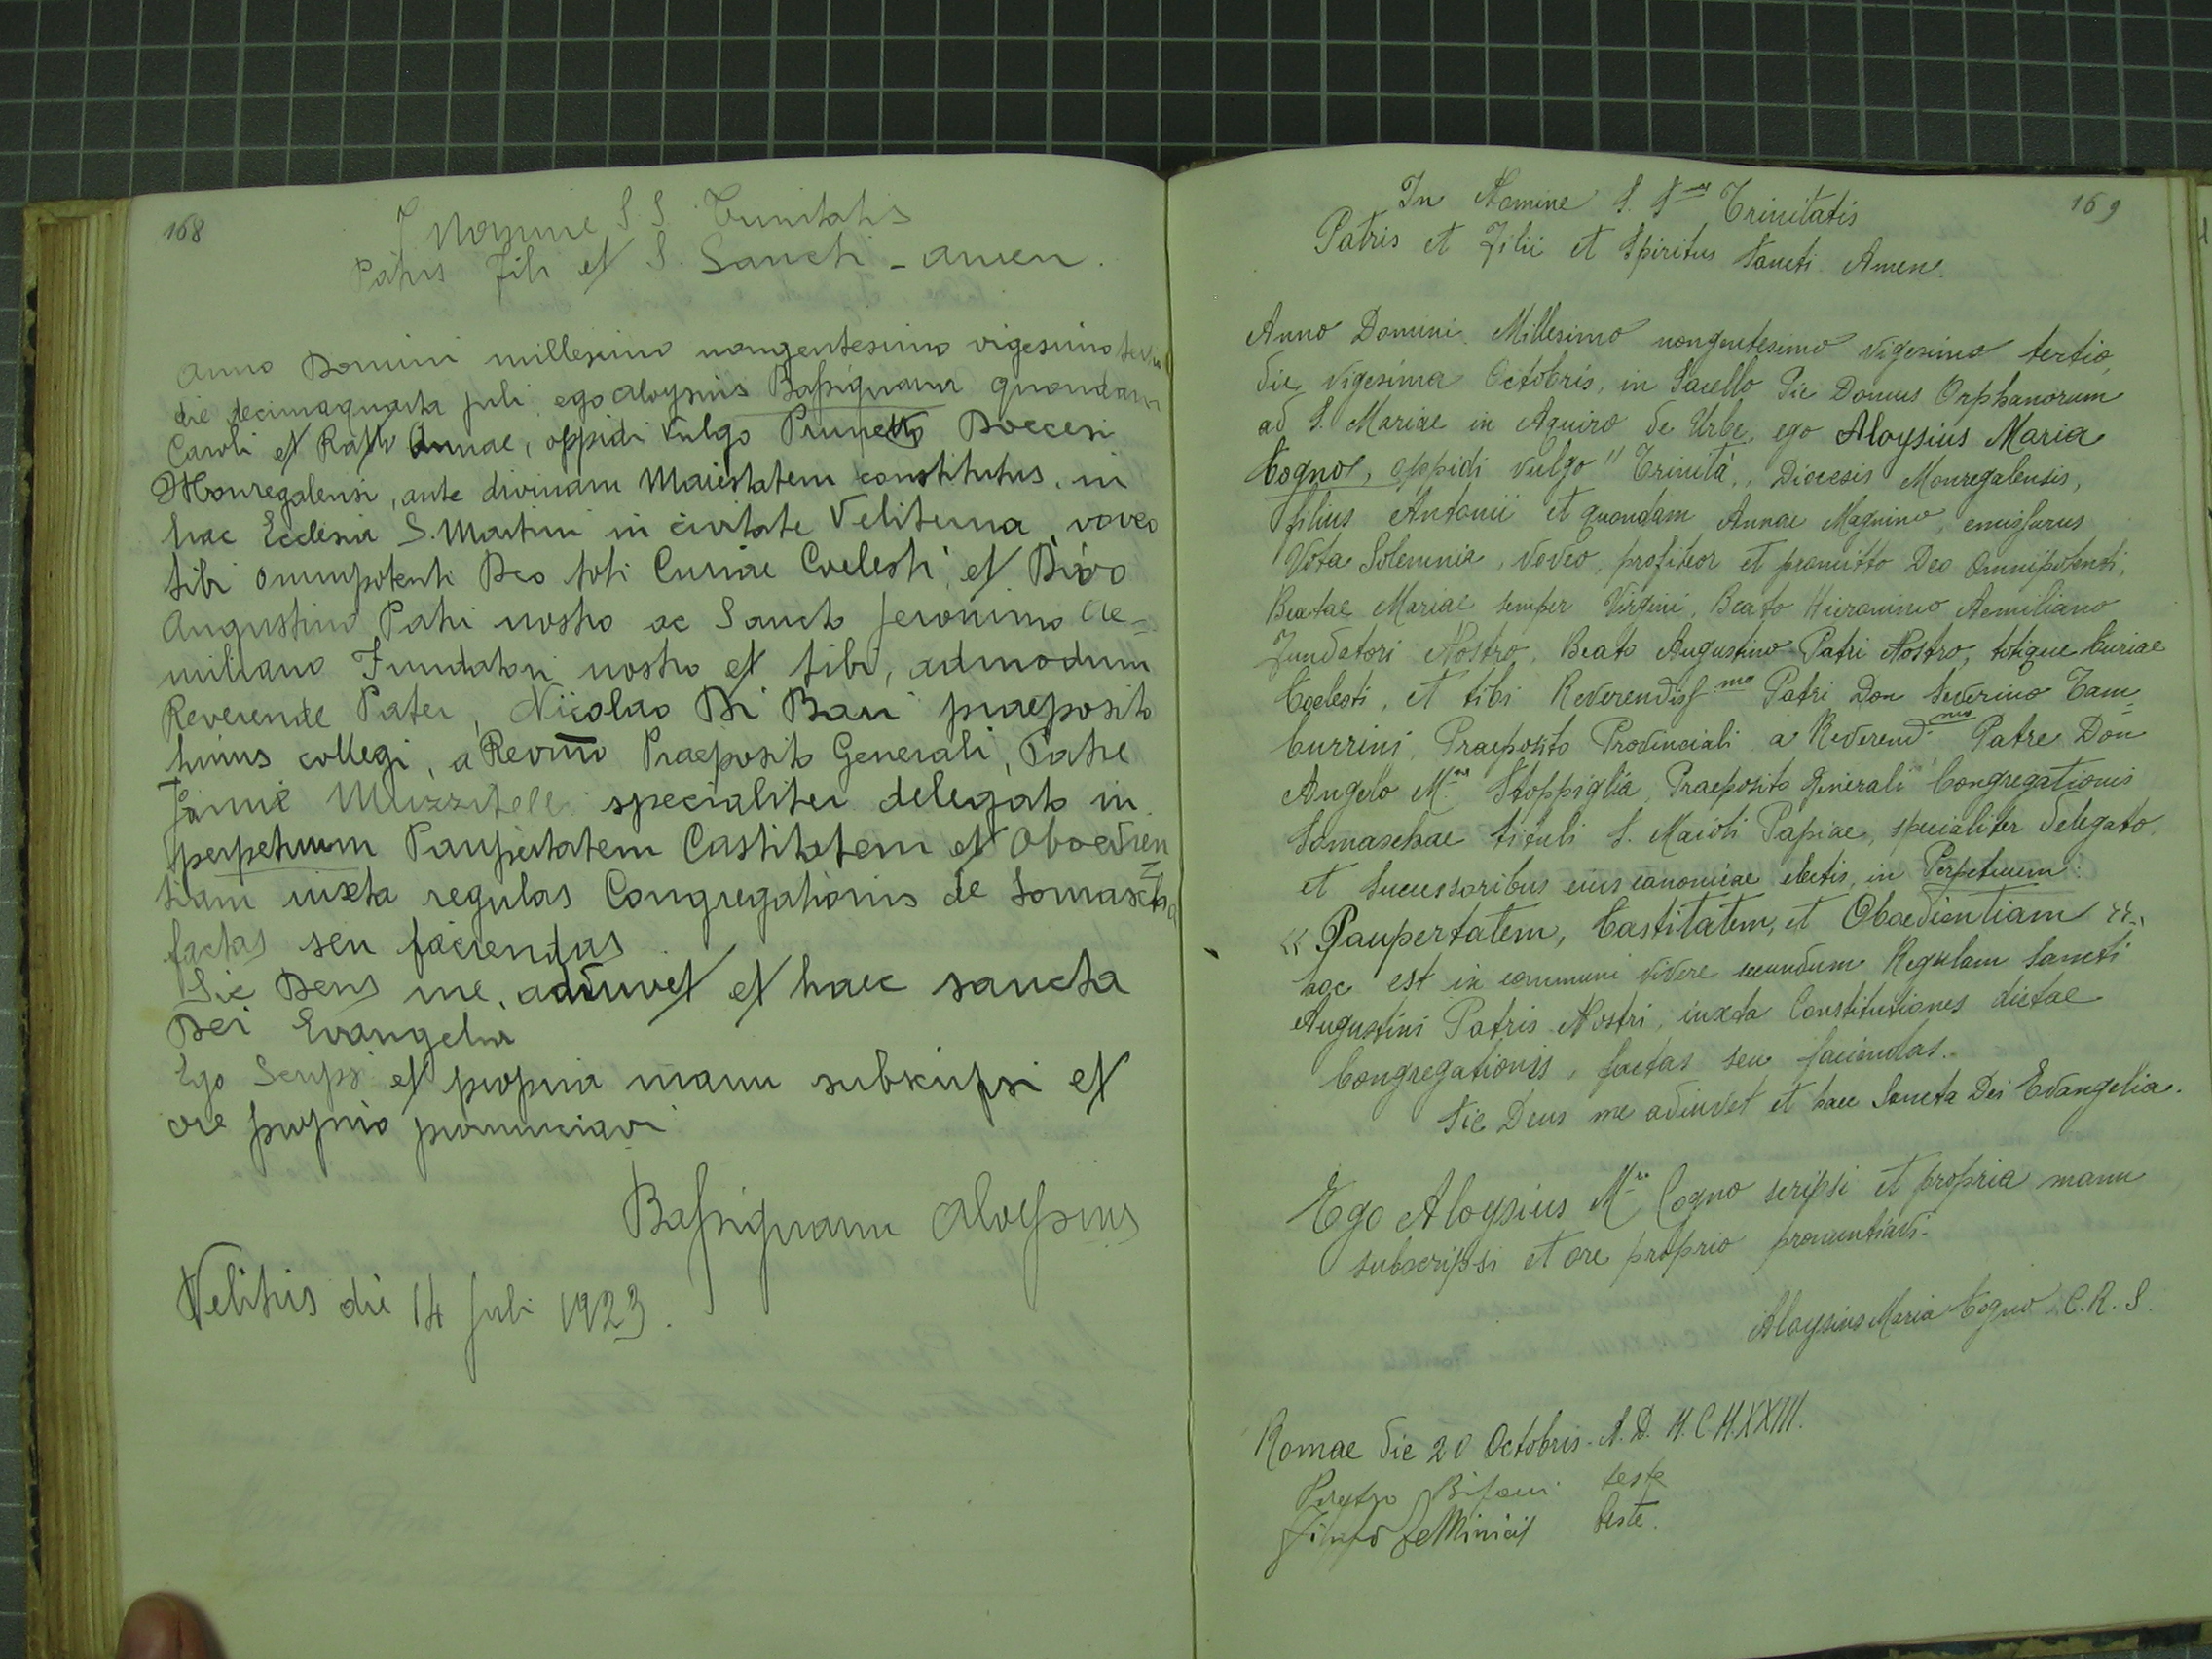 168
I Nomine S. S. Trinitatis
Patris Fili et S. Sancti - amen.
Anno Domini millesimo nongentesimo vigesimo
die decimaquarta juli, ego Aloysius Bassignana quondam
Caroli et Annae, oppidi vulgo Prunetto Doecesi
Monregalensi, ante divinam Maiestatem constitutus, in
hac Ecclesia S. Martini in civitate Veliterna, voveo
tibi Omnipotenti Deo toti Curiae Coelesti, et Divo
Augustino Patri nostro ac Sancto Jeronimo Ae=
miliano Fundatori nostro et tibi, admodum
Reverende Pater, Nicolao Di Bari praeposito
huius collegi, a Revmo Praeposito Generali, Patre
Muzzitelli specialiter delegato in
perpetuum Paupertatem Castitatem et Oboedien=
tiam iuxta regulas Congregationis de Somascha
factas seu faciendas
Sic Deus me adiuvet et haec sancta
Dei Evangelia
Ego Scripsi et propria manu subscripsi et
ore proprio pronunciavi
Bassignana Aloysius
Velitris die 14 Juli 1923.
169
In Nomine S. S.mae Trinitatis
Patris et Filii et Spiritus Sancti Amen.
Anno Domini Millesimo nongentesimo vigesimo tertio,
die vigesima Octobris, in Sacello Pie Domus Orphanorum
ad S. Mariae in Aquiro de Urbe, ego Aloysius Maria
Cogno, oppidi vulgo "Trinità", Diocesis Monregalensis,
filius Antonii et quondam Annae Magnino, emissurus
Vota Solemnia, voveo, profiteor et promitto Deo Omnipotenti,
Beatae Mariae semper Virgini, Beato Hieronimo Aemiliano
Fundatori Nostro, Beato Augustino Patri Nostro, totique Curiae
Coelesti, et tibi Reverendiss.mo Patri Don Severino Tam=
burrini, Praeposito Provinciali a Reverend.mo Patre Don
Angelo M.a Stoppiglia, Praeposito Generali Congregationis
Somaschae tituli S. Maioli Papiae, specialiter delegato,
et Successoribus eius canonicae electis, in Perpetuum:
« Paupertatem, Castitatem, et Oboedientiam »,
hoc est in communi vivere secundum Regulam Sancti
Augustini Patris Nostri, iuxta Constitutiones dictae
Congregationis, factas seu faciendas.
Sic Deus me adiuvet et haec Sancta Dei Evangelia.
Ego Aloysius M.a Cogno scripsi et propria manu
subscripsi et ore proprio pronuntiavi.
Aloysius Maria Cogno C.R.S.
Romae die 20 Octobris. A.D. M.CM.XXIII.
Pietro teste
teste.